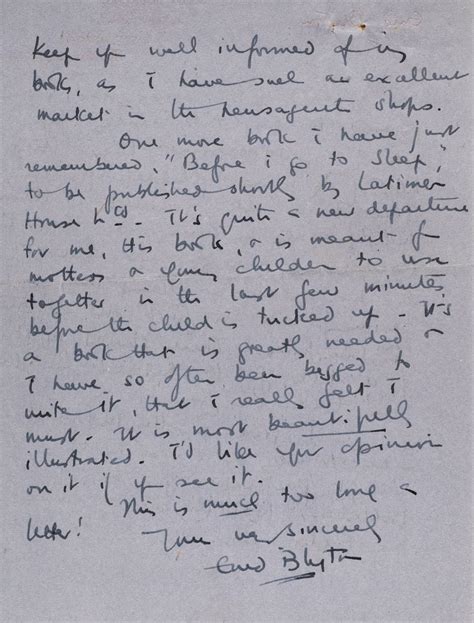 Keep yr well informed of my
books, as I have such an excellent
market in the newsagents shops.
One more book I have just
remembered, "Before I go to Sleep,"
to be published shortly by Latimer
House Ltd. It's quite a new departure
for me, this book, & is meant for
mothers & young children to use
together in the last few minutes
before the child is tucked up - It's
a book that is greatly needed &
I have so often been begged to
write it, that I really felt I
must. It is most beautifully
illustrated. I'd like your opinion
on it if you see it.
This is much too long a
letter!
Yours very sincerely
Enid Blyton